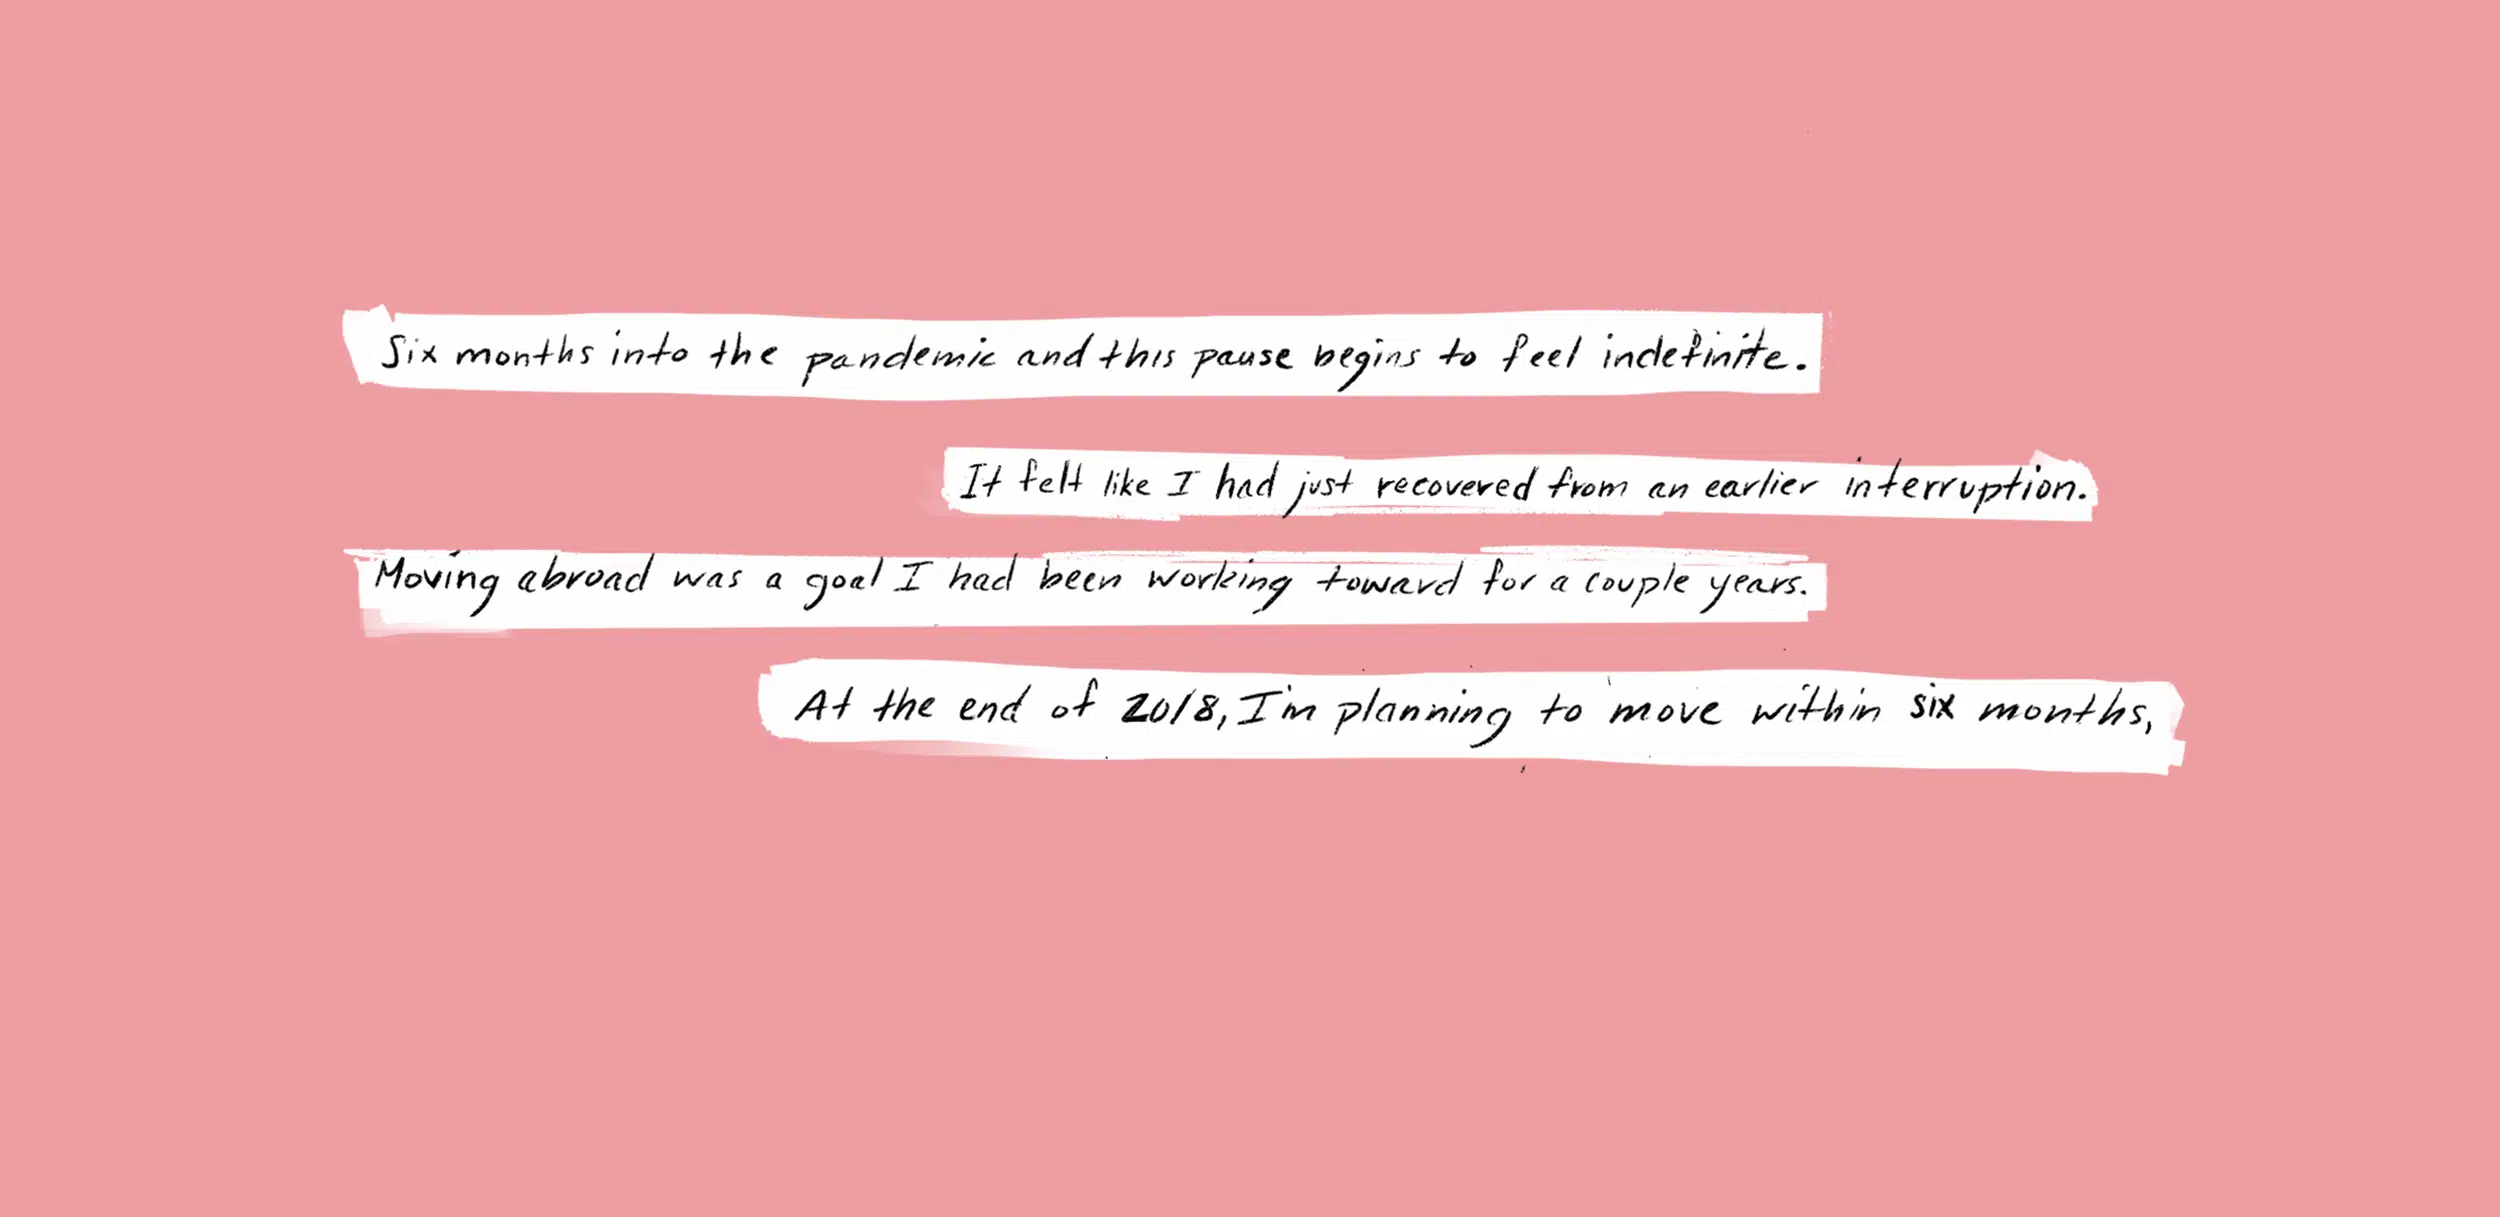 Six months into the pandemic and this pause begins to feel indefinite.
It felt like I had just recovered from an earlier interruption.
Moving abroad was a goal I had been working toward for a couple years.
At the end of 2018, I'm planning to move within six months,